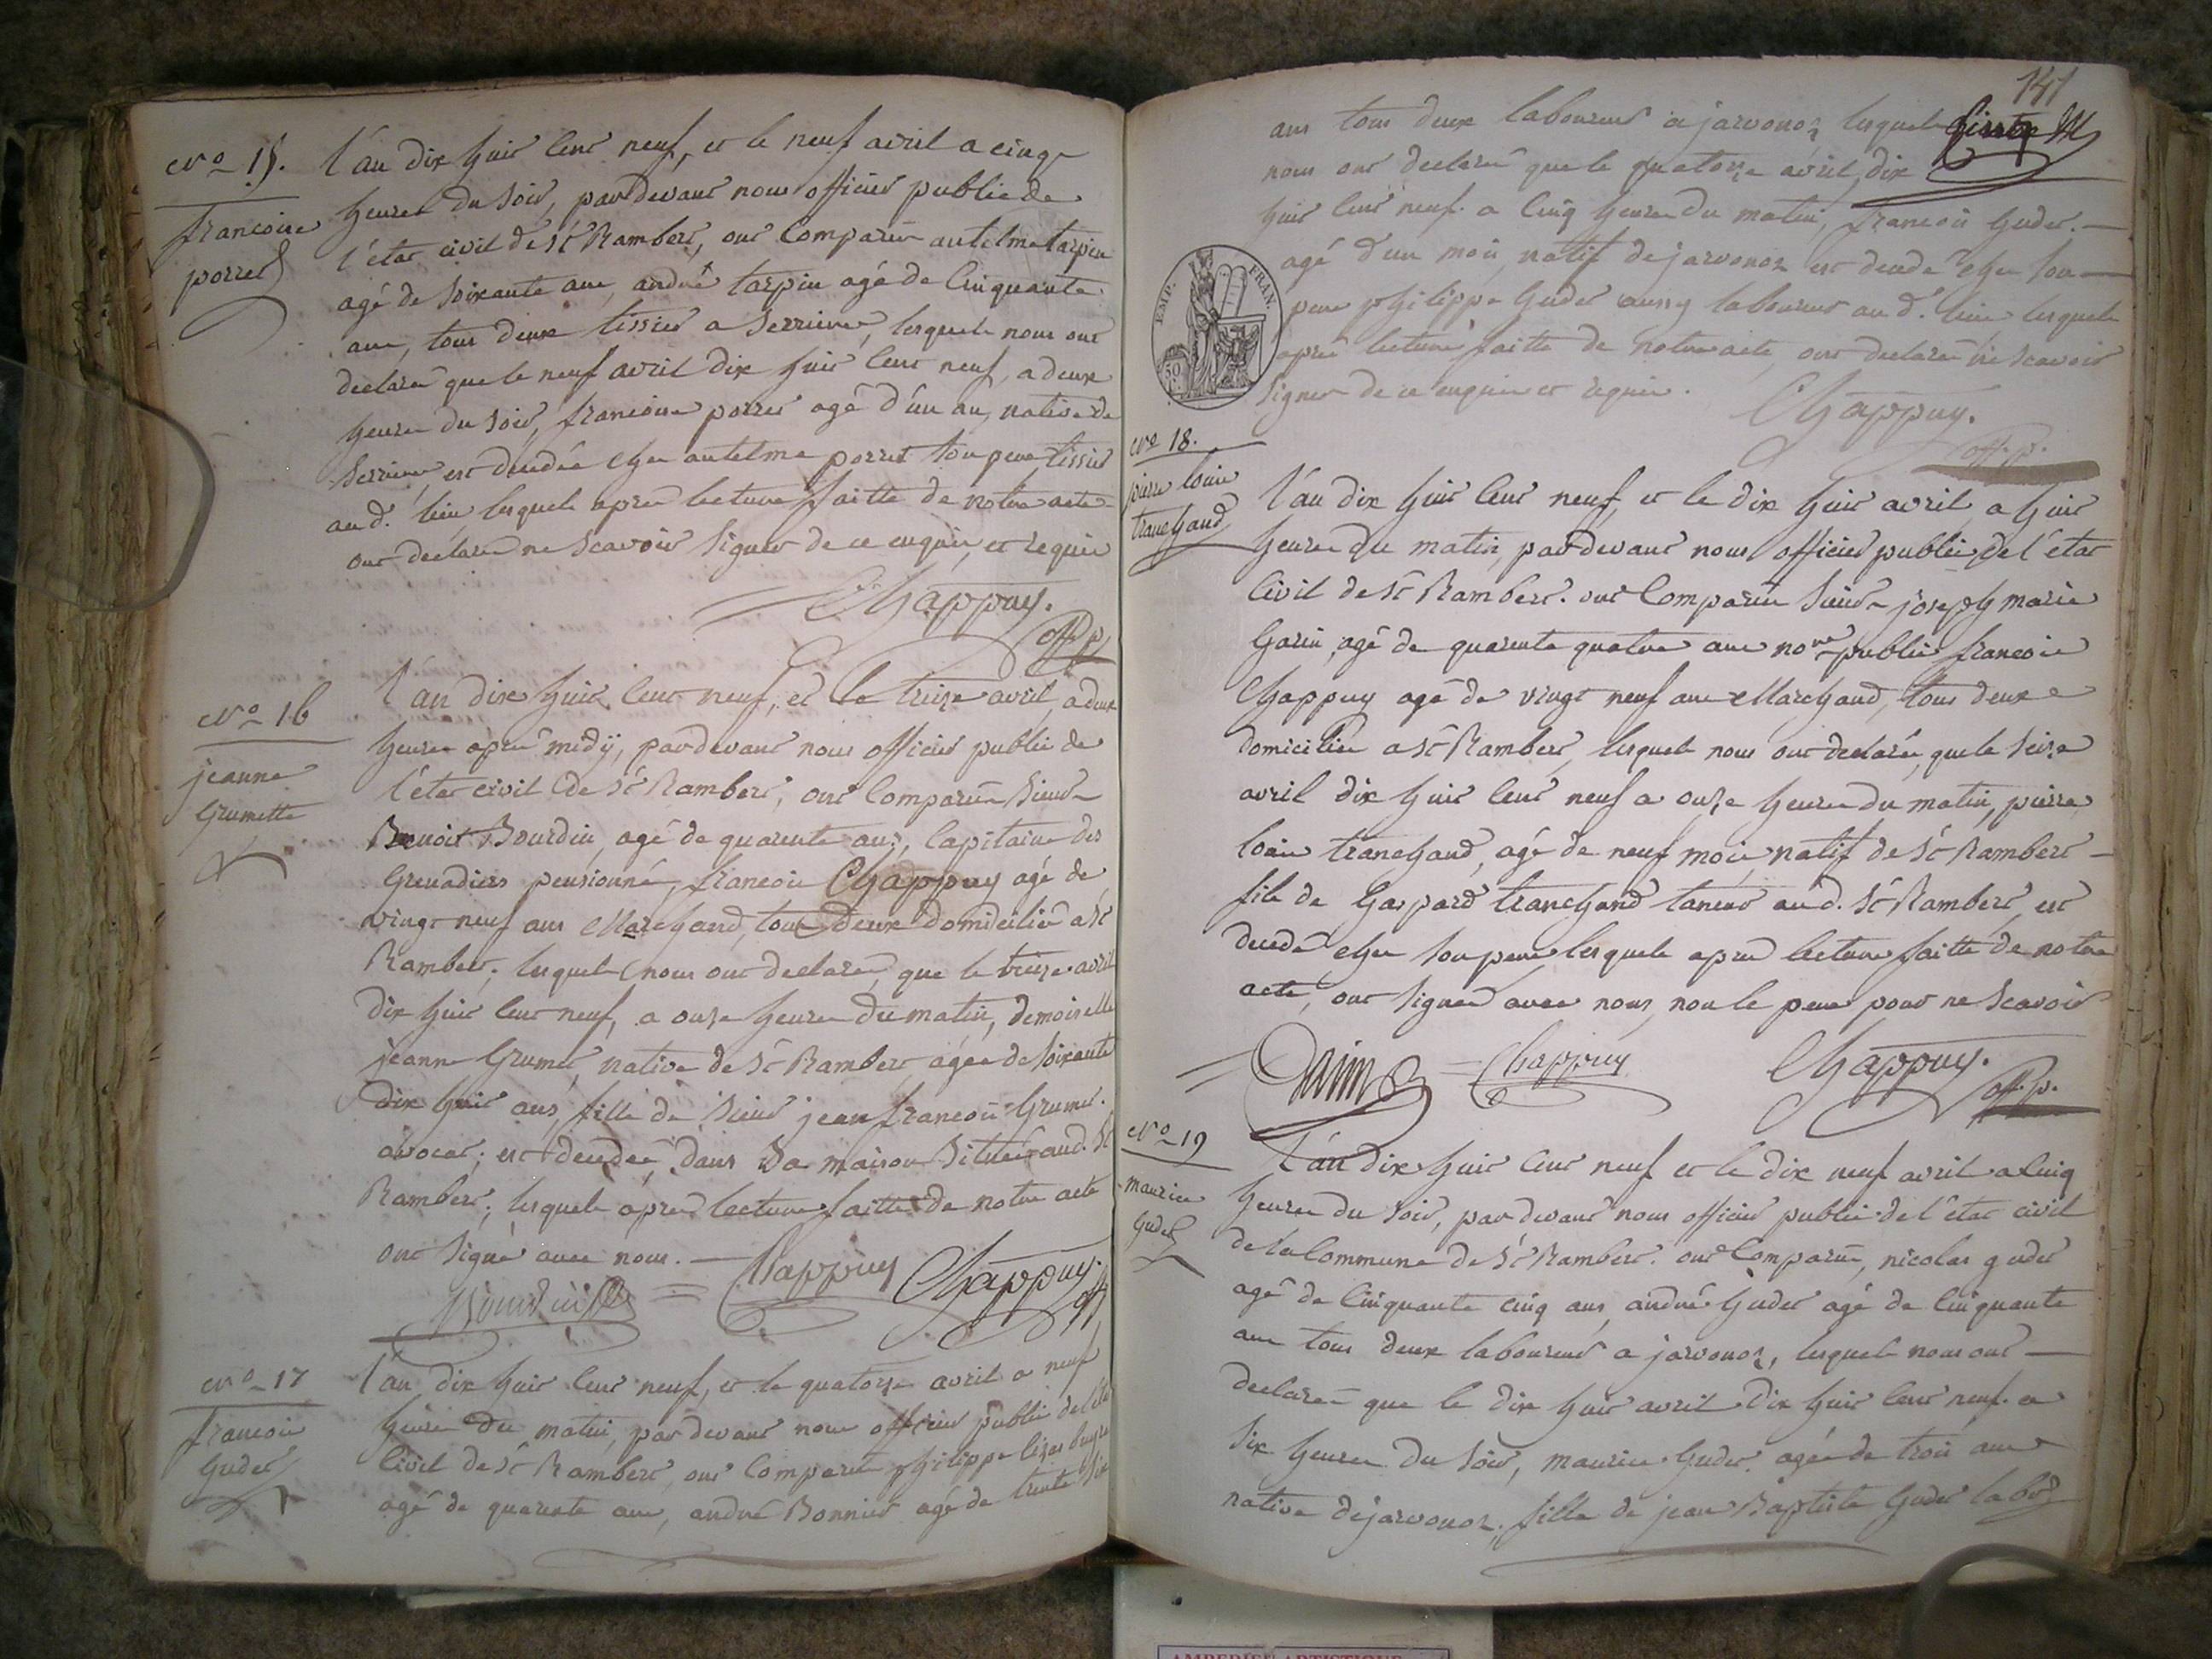 N.o 15.
francoise
porret
L'an dix huit cent neuf, et le neuf avril a cinq
heures du soir, pardevant nous officier public de
l'état civil de St Rambert, ont comparu antelme tarpin
agé de soixante ans, andré tarpin agé de cinquante
ans, tous deux tissier a serriere, lesquels nous ont
declaré que le neuf avril dix huit cent neuf, a deux
heures du soir, francoise porret agé d'un an, native de
serriere, est decedée chez antelme porret son pere tissier
aud. lieu, lesquels apres lecture faitte de notre acte
ont declaré ne scavoir signer de ce enquis et requis
Chappuy.
off. p.
N.o 16
jeanne
Grumette
L'an dix huit cent neuf, et le treize avril, a deux
heures apres medÿ, pardevant nous officier public de
l'état civil de St Rambert, ont comparu sieur
Benoit Bourdin, agé de quarente ans, Capitaine des
Grenadiers pensionné, francois Chappuy agé de
vingt neuf ans Marchand, tous deux domicilié a St
Rambert; lesquels nous ont declaré, que le treize avril
dix huit cent neuf, a onze heures du matin, demoiselle
jeanne Grumet, native de St Rambert agée de soixante
dix huit ans, fille de sieur jean francois Grumet
avocat; est decedée dans sa maison située aud. St
Rambert; lesquels apres lecture faitte de notre acte
ont signé avec nous.
Bourdin Chappuy Chappuy.
off
N.o 17
francois
Guder
L'an dix huit cent neuf, et le quatorze avril a neuf
heures du matin, pardevant nous officier public de l'état
civil de St Rambert, ont comparu philippe
agé de quarente ans, andré Bonnier agé de trente six
141
ans tous deux laboureur a jarvonoz lesquels
nous ont declaré que le quatorze avril dix
huit cent neuf. a cinq heures du matin, francois Guder.
agé d'un mois, natif de jarvonoz est decedé chez son
pere philippe Guder aussy laboureur aud. lieu lesquels
apres lecture faitte de notre acte ont declaré ne scavoir
signer de ce enquis et requis.
EMP. FRAN.
50
Chappuy.
off. p.
N.o 18.
pierre louis
tranchand
L'an dix huit cent neuf, et le dix huit avril, a huit
heures du matin, pardevant nous officier public de l'état
civil de St Rambert. ont comparu sieur joseph marie
Garin, agé de quarente quatre ans nore public francois
Chappuy agé de vingt neuf ans Marchand, tous deux
domicilié a St Rambert, lesquels nous ont declaré, que le seize
avril dix huit cent neuf a onze heures du matin, pierre
louis tranchand, agé de neuf mois natif de St Rambert
fils de Gaspard tranchand taneur aud. St Rambert, est
decedé chez son pere lesquels apres lecture faitte de notre
acte, ont signé avec nous, non le pere pour ne scavoir
Garin Chappuy Chappuy.
off. p.
N.o 19
maurise
Guder
L'an dix huit cent neuf et le dix neuf avril a cinq
heures du soir, pardevant nous officier public de l'état civil
de la commune de St Rambert. ont comparu, nicolas guder
agé de cinquante cinq ans, andré Guder agé de cinquante
ans tous deux laboureur a jarvonoz, lesquels nous ont
declaré que le dix huit avril dix huit cent neuf. a
six heures du soir, maurise Guder agée de trois ans
native de jarvonoz, fille de jean Baptiste Guder labr